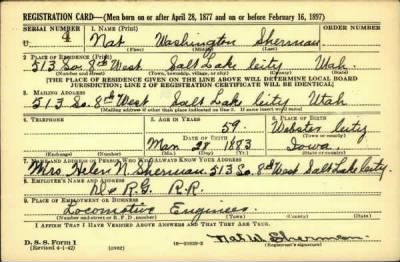 REGISTRATION CARD—(Men born on or after April 28, 1877 and on or before February 16, 1897)
SERIAL NUMBER 1. NAME (Print) ORDER NUMBER
U 4 Nat Washington Sherman
(First) (Middle) (Last)
2. PLACE OF RESIDENCE (Print)
513 So. 8th West Salt Lake City Utah.
(Number and street) (Town, township, village, or city) (County) (State)
[THE PLACE OF RESIDENCE GIVEN ON THE LINE ABOVE WILL DETERMINE LOCAL BOARD
JURISDICTION; LINE 2 OF REGISTRATION CERTIFICATE WILL BE IDENTICAL]
3. MAILING ADDRESS
513 So. 8th West Salt Lake City Utah
[Mailing address if other than place indicated on line 2. If same insert word same]
4. TELEPHONE 5. AGE IN YEARS 6. PLACE OF BIRTH
59. Webster City
DATE OF BIRTH (Town or county)
Mar 28 1883 Iowa.
(Exchange) (Number) (Mo.) (Day) (Yr.) (State or country)
7. NAME AND ADDRESS OF PERSON WHO WILL ALWAYS KNOW YOUR ADDRESS
Mrs. Helen N. Sherman. 513 So. 8th West Salt Lake City.
8. EMPLOYER'S NAME AND ADDRESS
D & R.G. R.R.
9. PLACE OF EMPLOYMENT OR BUSINESS
Locomotive Engineer
(Number and street or R. F. D. number) (Town) (County) (State)
I AFFIRM THAT I HAVE VERIFIED ABOVE ANSWERS AND THAT THEY ARE TRUE.
D. S. S. Form 1
(Revised 4-1-42) (over) Nat W Sherman
(Registrant's signature)